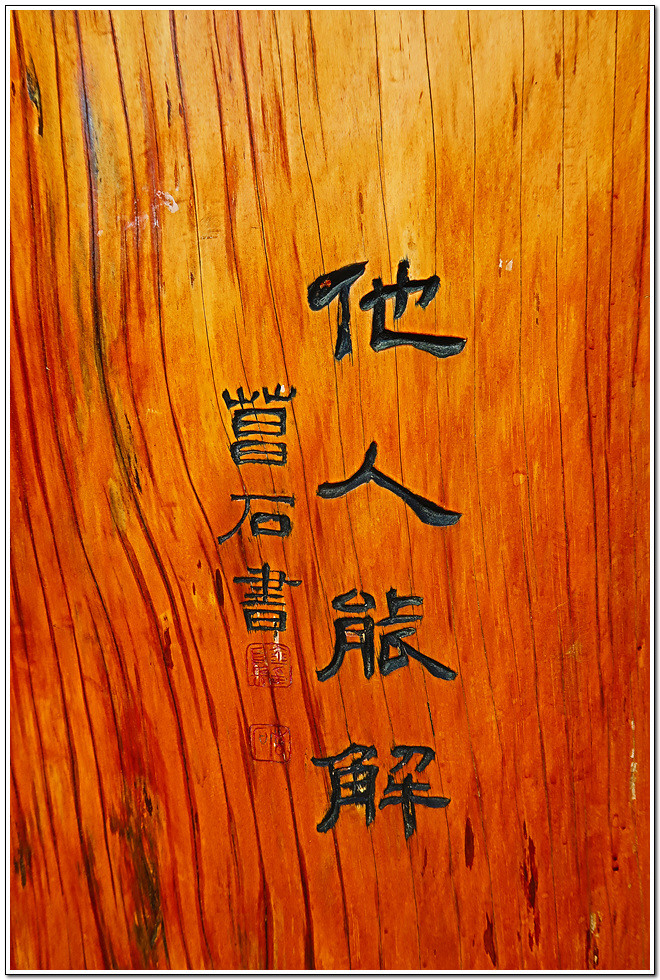 他人能解
菖石書